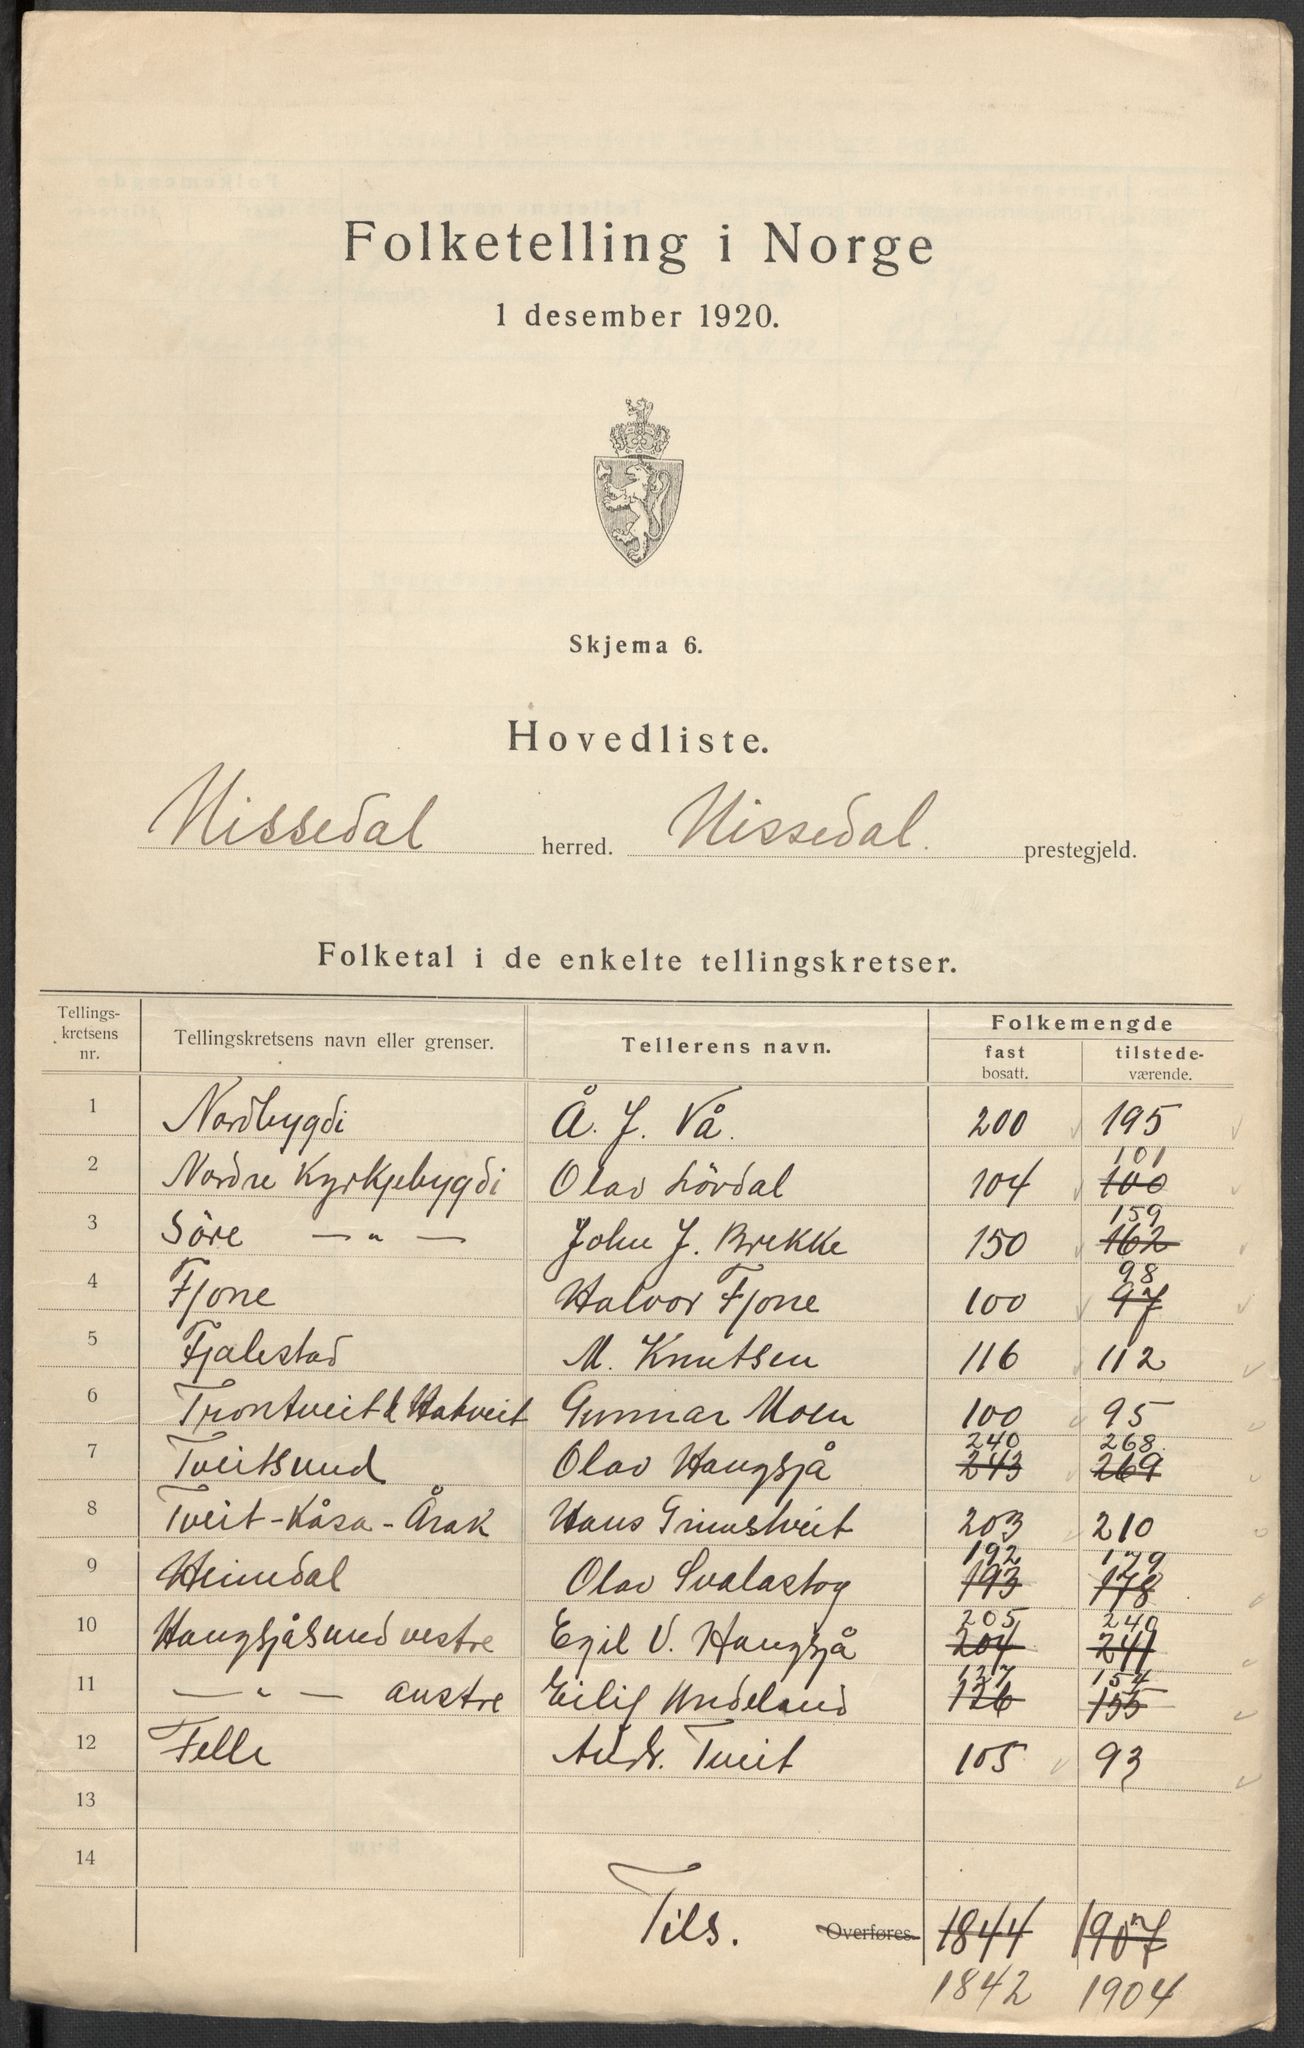 Folketelling i Norge
1 desember 1920.
Skjema 6.
Hovedliste.
Nissedal herred. Nissedal. prestegjeld.
Folketal i de enkelte tellingskretser.
Tellings-
kretsens
nr.
Tellingskretsens navn eller grenser.
Tellerens navn.
Folkemengde
fast
bosatt.
tilstede-
værende.
1 Nordbygdi Å. J. Vå. 200 195
2 Nordre Kyrkjebygdi Olav Lövdal 104 101 100
3 Söre — „ — John J. Brekke 150 159 162
4 Fjone Halvor Fjone 100 98 97
5 Fjalestad M. Knutsen 116 112
6 Trontveit & Hatveit Gunnar Moen 100 95
7 Tveitsund Olav Haugsjå 240 243 268 269
8 Tveit-Kåsa-Årak Hans Grimstveit 203 210
9 Heimdal Olav Svalastog 192 193 179 178
10 Haugsjåsund vestre Egil V. Haugsjå 205 204 240 241
11 — „ — austre Eilif Undeland 127 126 154 155
12 Felle Andr. Tveit 105 93
13
14
Tils. Overføres. 1844 1907
1842 1904